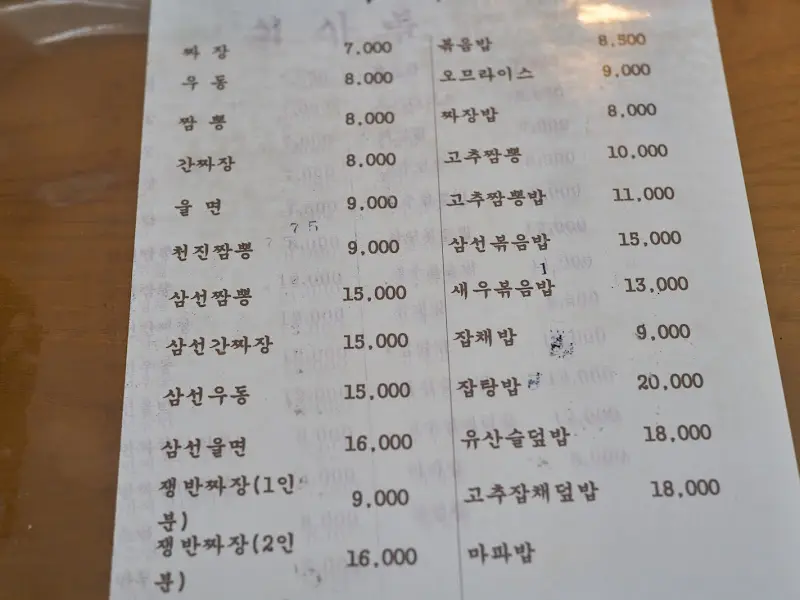 짜 장 7,000
우 동 8.000
짬 뽕 8,000
간짜장 8,000
울 면 9,000
천진짬뽕 9,000
삼선짬뽕 15,000
삼선간짜장 15,000
삼선우동 15,000
삼선울면 16,000
쟁반짜장(1인
분) 9,000
쟁반짜장(2인
분) 16,000
볶음밥 8,500
오므라이스 9,000
짜장밥 8,000
고추짬뽕 10,000
고추짬뽕밥 11,000
삼선볶음밥 15,000
새우볶음밥 13,000
잡채밥 9,000
잡탕밥 20,000
유산슬덮밥 18,000
고추잡채덮밥 18,000
마파밥